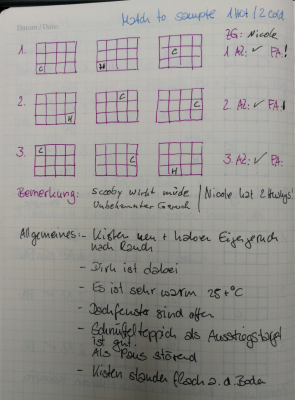 Datum / Date:
Match to sample 1 Hot / 2 Cold
ZG: Nicole
1.
C
H
C
1. AZ: ✓ FA!
2.
H
C
C
2. AZ: ✓ FA!
3.
C
C
H
3. AZ: ✓ FA:
Bemerkung: Scooby wirkt müde / Nicole hat 2 Hunde!
Unbekannter Geruch
Allgemeines: - Kisten neu + haben Eigengeruch
nach Rauch
- Dirk ist dabei
- Es ist sehr warm 25+°C
- Dachfenster sind offen
- Schnüffelteppich als
ist gut.
Als Pause störend
- Kisten standen flach a. d. Boden